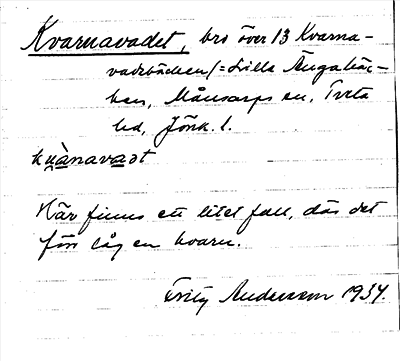 Kvarnavadet, bro över 13 Kvarna-
vadsbäcken/=Lilla Ängabäc-
ken, Månsarps sn, Tveta
hd, Jönk. l.
kuànavadt
Här finns ett litet fall, där det
förr låg en kvarn.
Fritz Andersson 1934.